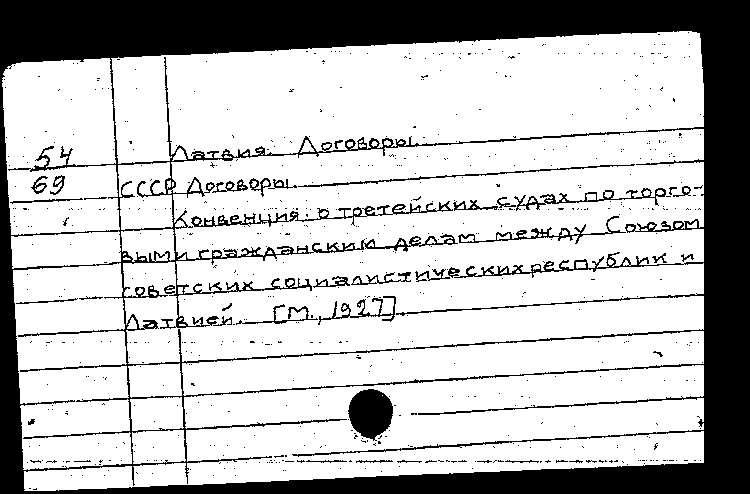 54 Латвия. Договоры.
69 СССР Договоры.
Конвенция о третейских судах по торго-
выми гражданским делам между Союзом
советских социалистических республик и
Латвией. [М., 1927].